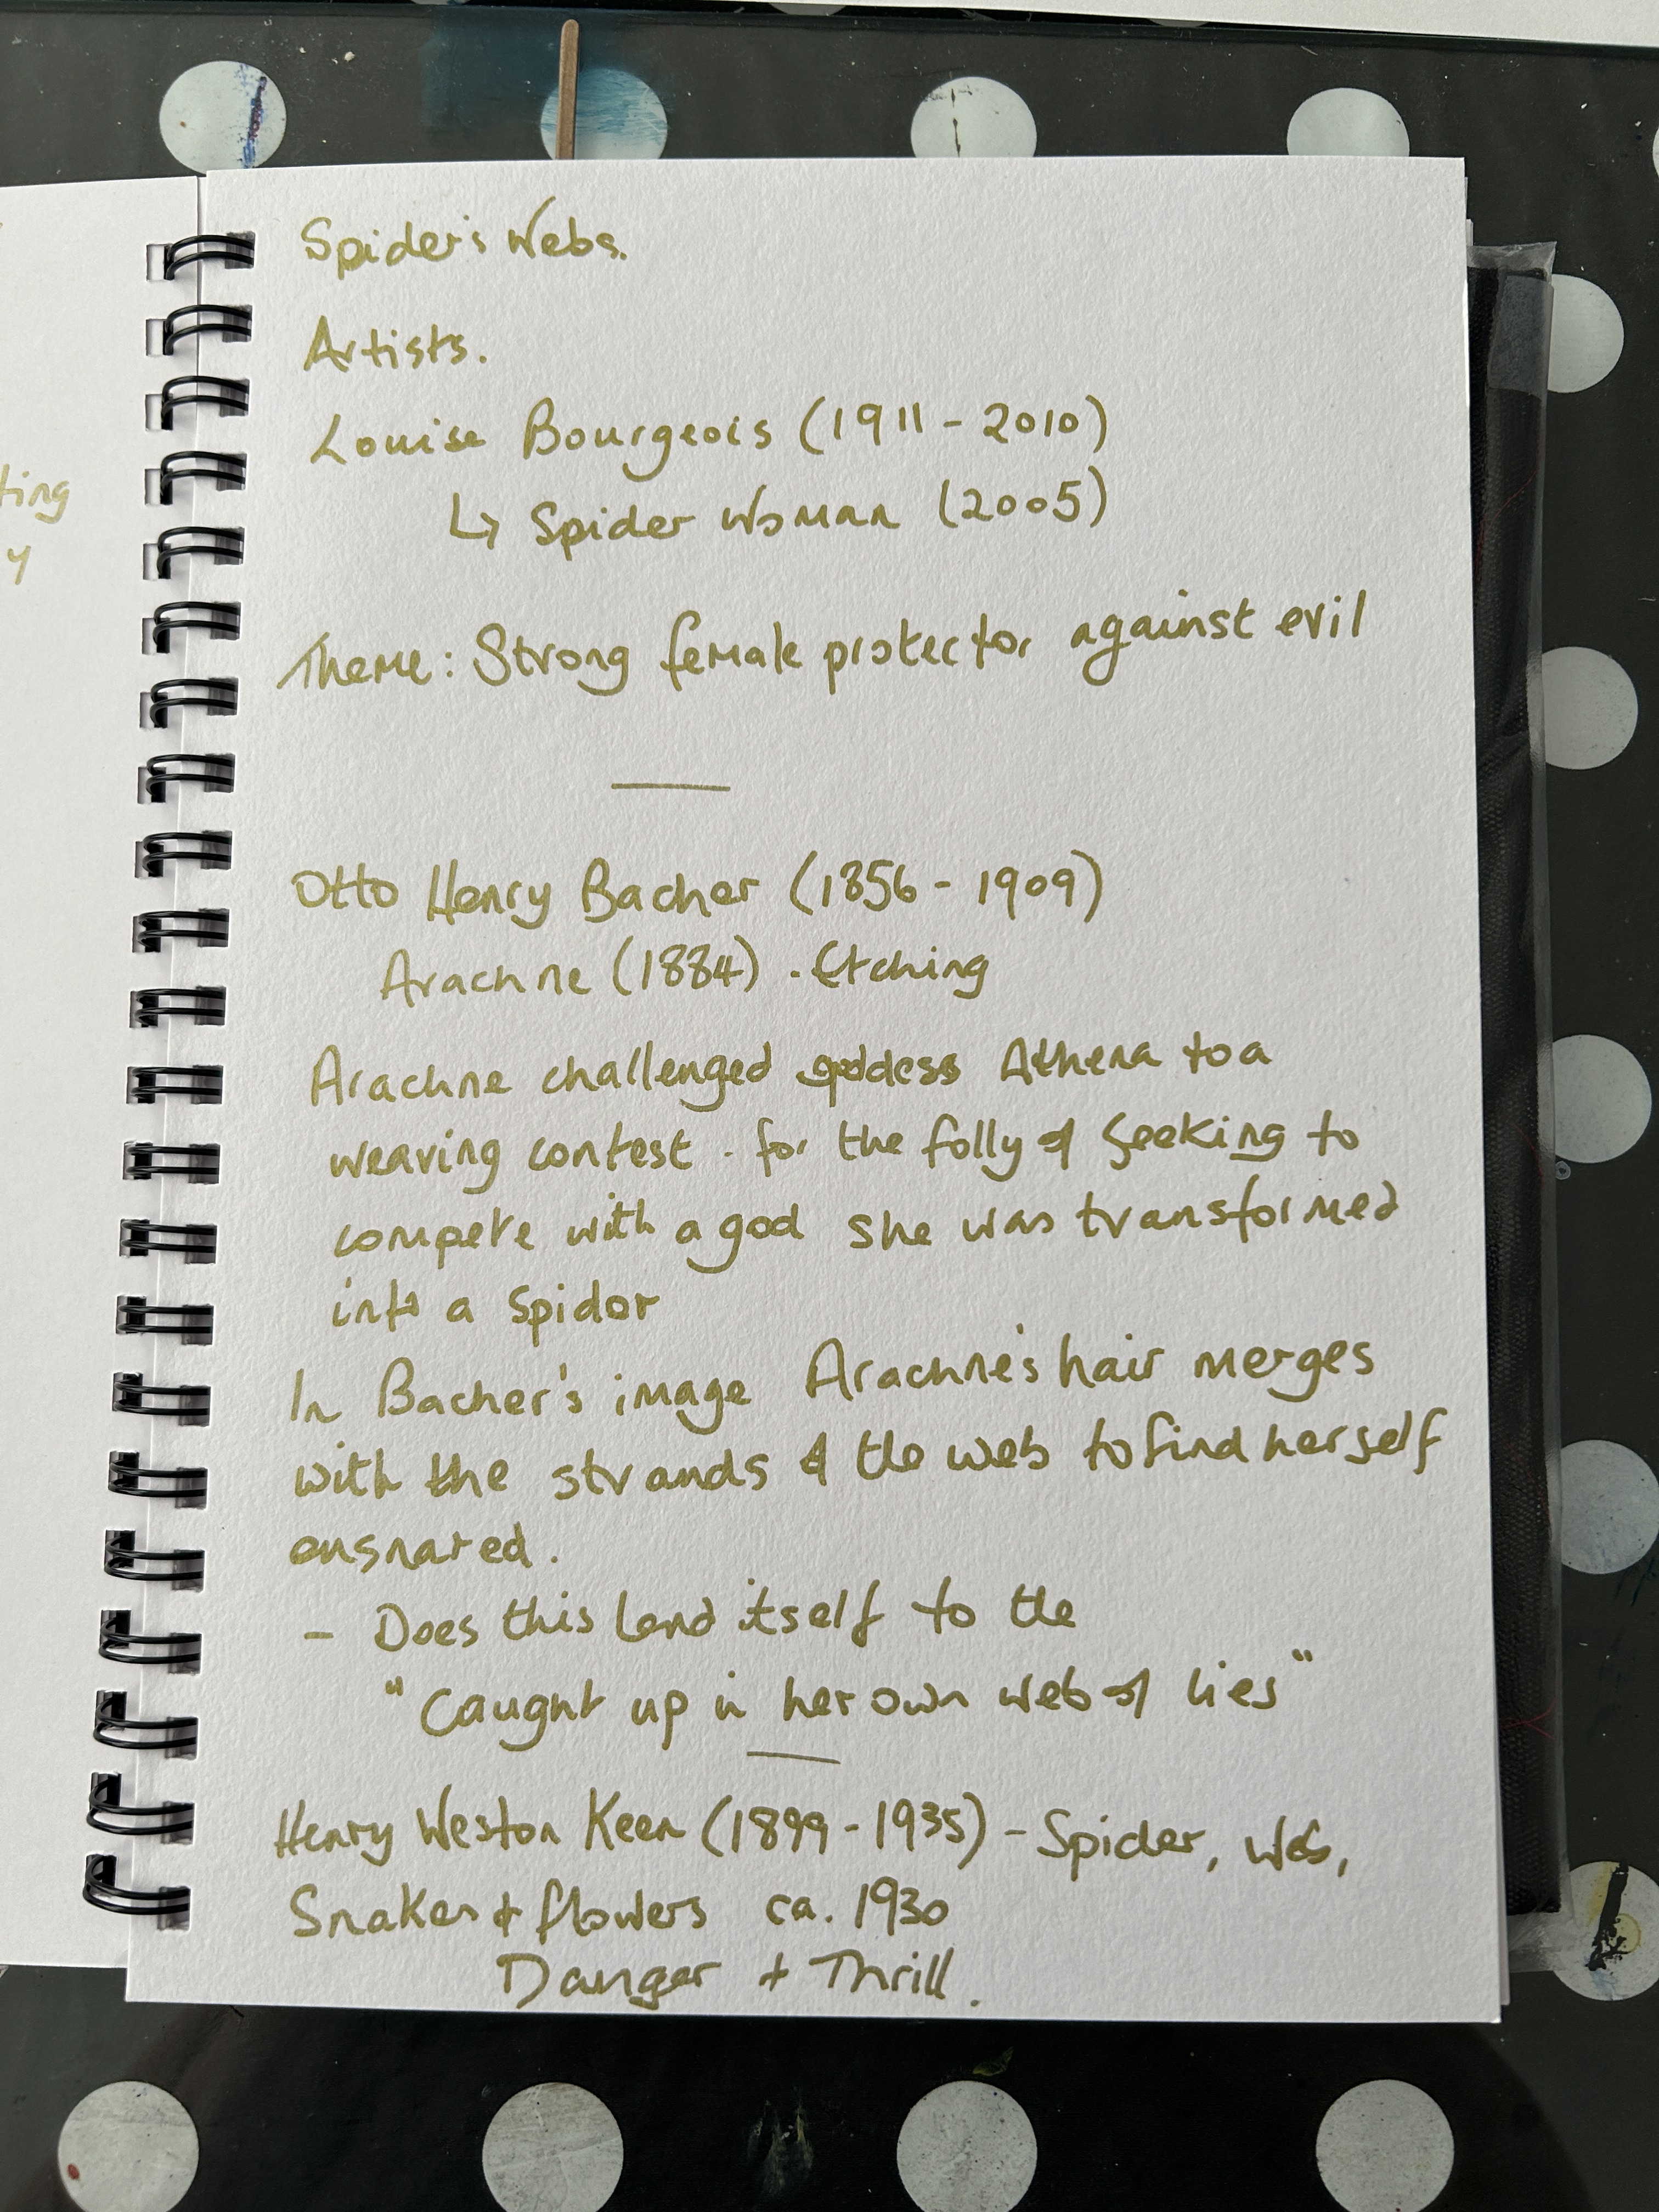 ting
y
Spider's Webs.
Artists.
Louise Bourgeois (1911 - 2010)
↳ Spider Woman (2005)
Theme: Strong female protector against evil
Otto Henry Bacher (1856 - 1909)
Arachne (1884) - Etching
Arachne challenged goddess Athena to a
weaving contest - for the folly of seeking to
compete with a god she was transformed
into a spider
In Bacher's image Arachne's hair merges
with the strands of the web to find herself
ensnared.
- Does this lend itself to the
"caught up in her own web of lies"
Henry Weston Keen (1899 - 1935) - Spider, Web,
Snakes + flowers ca. 1930
Danger + Thrill.